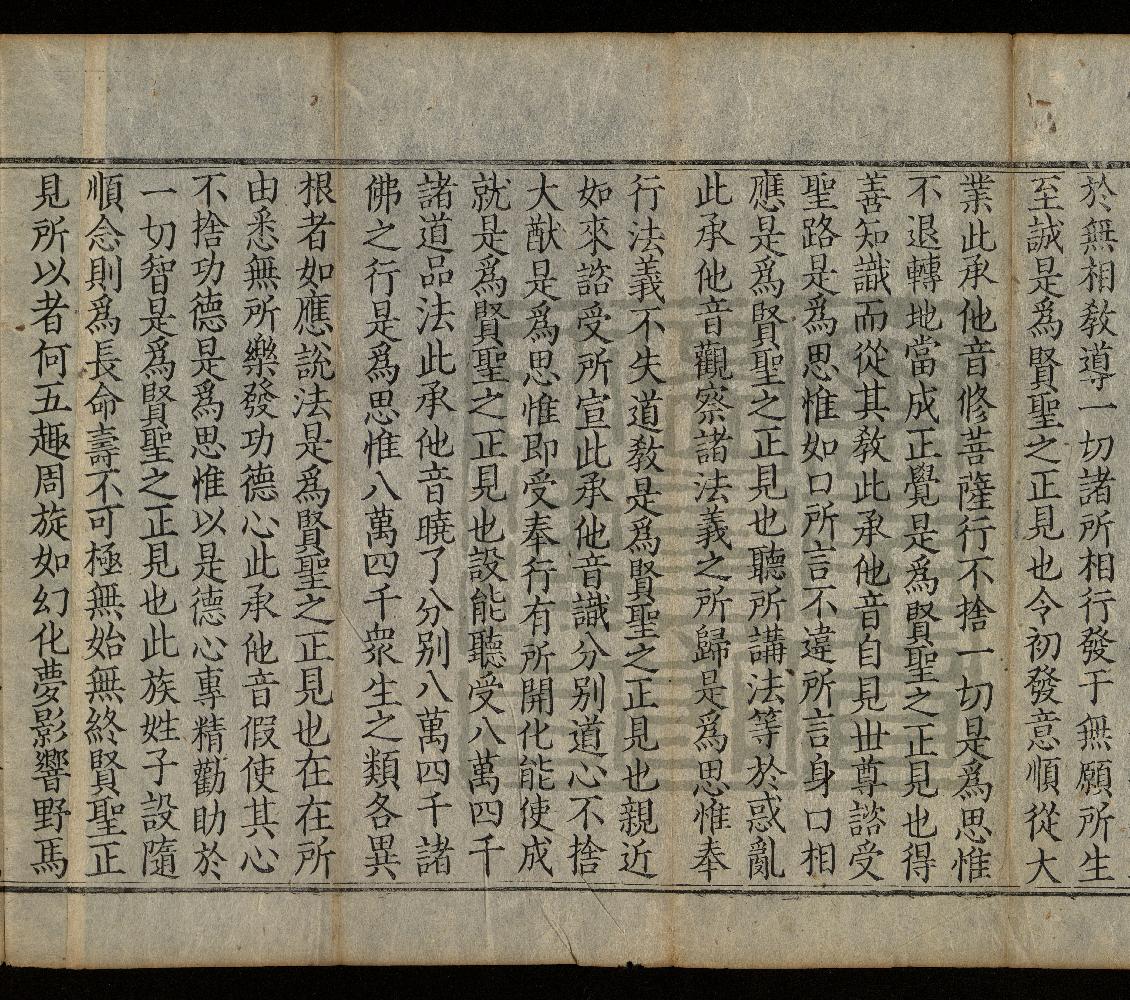 於無相教導一切諸所相行發于無願所生
至誠是爲賢聖之正見也令初發意順從大
業此承他音修菩薩行不捨一切是爲思惟
不退轉地當成正覺是爲賢聖之正見也得
善知識而從其教此承他音自見世尊諮受
聖路是爲思惟如口所言不違所言身口相
應是爲賢聖之正見也聽所講法等於惑亂
此承他音觀察諸法義之所歸是爲思惟奉
行法義不失道教是爲賢聖之正見也親近
如來諮受所宣此承他音識分别道心不捨
大猷是爲思惟即受奉行有所開化能使成
就是爲賢聖之正見也設能聽受八萬四千
諸道品法此承他音曉了分别八萬四千諸
佛之行是爲思惟八萬四千衆生之類各異
根者如應說法是爲賢聖之正見也在在所
由悉無所樂發功德心此承他音假使其心
不捨功德是爲思惟以是德心專精勸助於
一切智是爲賢聖之正見也此族姓子設隨
順念則爲長命壽不可極無始無終賢聖正
見所以者何五趣周旋如幻化夢影響野馬